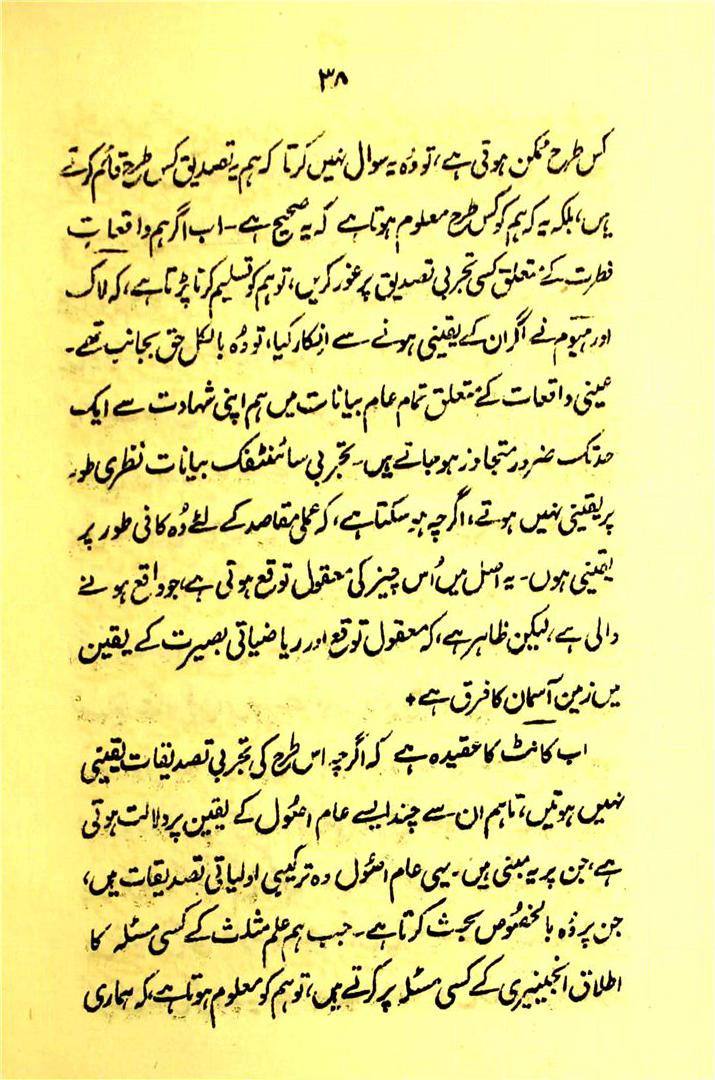 ۳۸
کس طرح ممکن ہوتی ہے، تو وُہ یہ سوال نہیں کرتا کہ ہم یہ تصدیق کس طرح قائم کرتے
ہیں، بلکہ یہ کہ ہم کو کس طرح معلوم ہوتا ہے کہ یہ صحیح ہے۔ اب اگر ہم واقعاتِ
فطرت کے متعلق کسی تجربی تصدیق پر غور کریں، تو ہم کو تسلیم کرنا پڑتا ہے، کہ لاک
اور ہیوم نے اگر ان کے یقینی ہونے سے انکار کیا، تو وُہ بالکل حق بجانب تھے۔
عینی واقعات کے متعلق تمام عام بیانات میں ہم اپنی شہادت سے ایک
حد تک ضرور متجاوز ہو جاتے ہیں۔ تجربی سائنٹفک بیانات نظری طور
پر یقینی نہیں ہوتے، اگرچہ ہو سکتا ہے، کہ عملی مقاصد کے لئے وُہ کافی طور پر
یقینی ہوں۔ یہ اصل میں اُس چیز کی معقول توقع ہوتی ہے، جو واقع ہونے
والی ہے، لیکن ظاہر ہے، کہ معقول توقع اور ریاضیاتی بصیرت کے یقین
میں زمین آسمان کا فرق ہے ٭
اب کانٹ کا عقیدہ ہے کہ اگرچہ اس طرح کی تجربی تصدیقات یقینی
نہیں ہوتیں، تاہم ان سے چند ایسے عام اصُول کے یقین پر دلالت ہوتی
ہے، جن پر یہ مبنی ہیں۔ یہی عام اصُول وہ ترکیبی اولیاتی تصدیقات ہیں،
جن پر وُہ بالخصُوص بحث کرتا ہے۔ جب ہم علم مثلث کے کسی مسئلہ کا
اطلاق انجینیری کے کسی مسئلہ پر کرتے ہیں، تو ہم کو معلوم ہوتا ہے، کہ ہماری